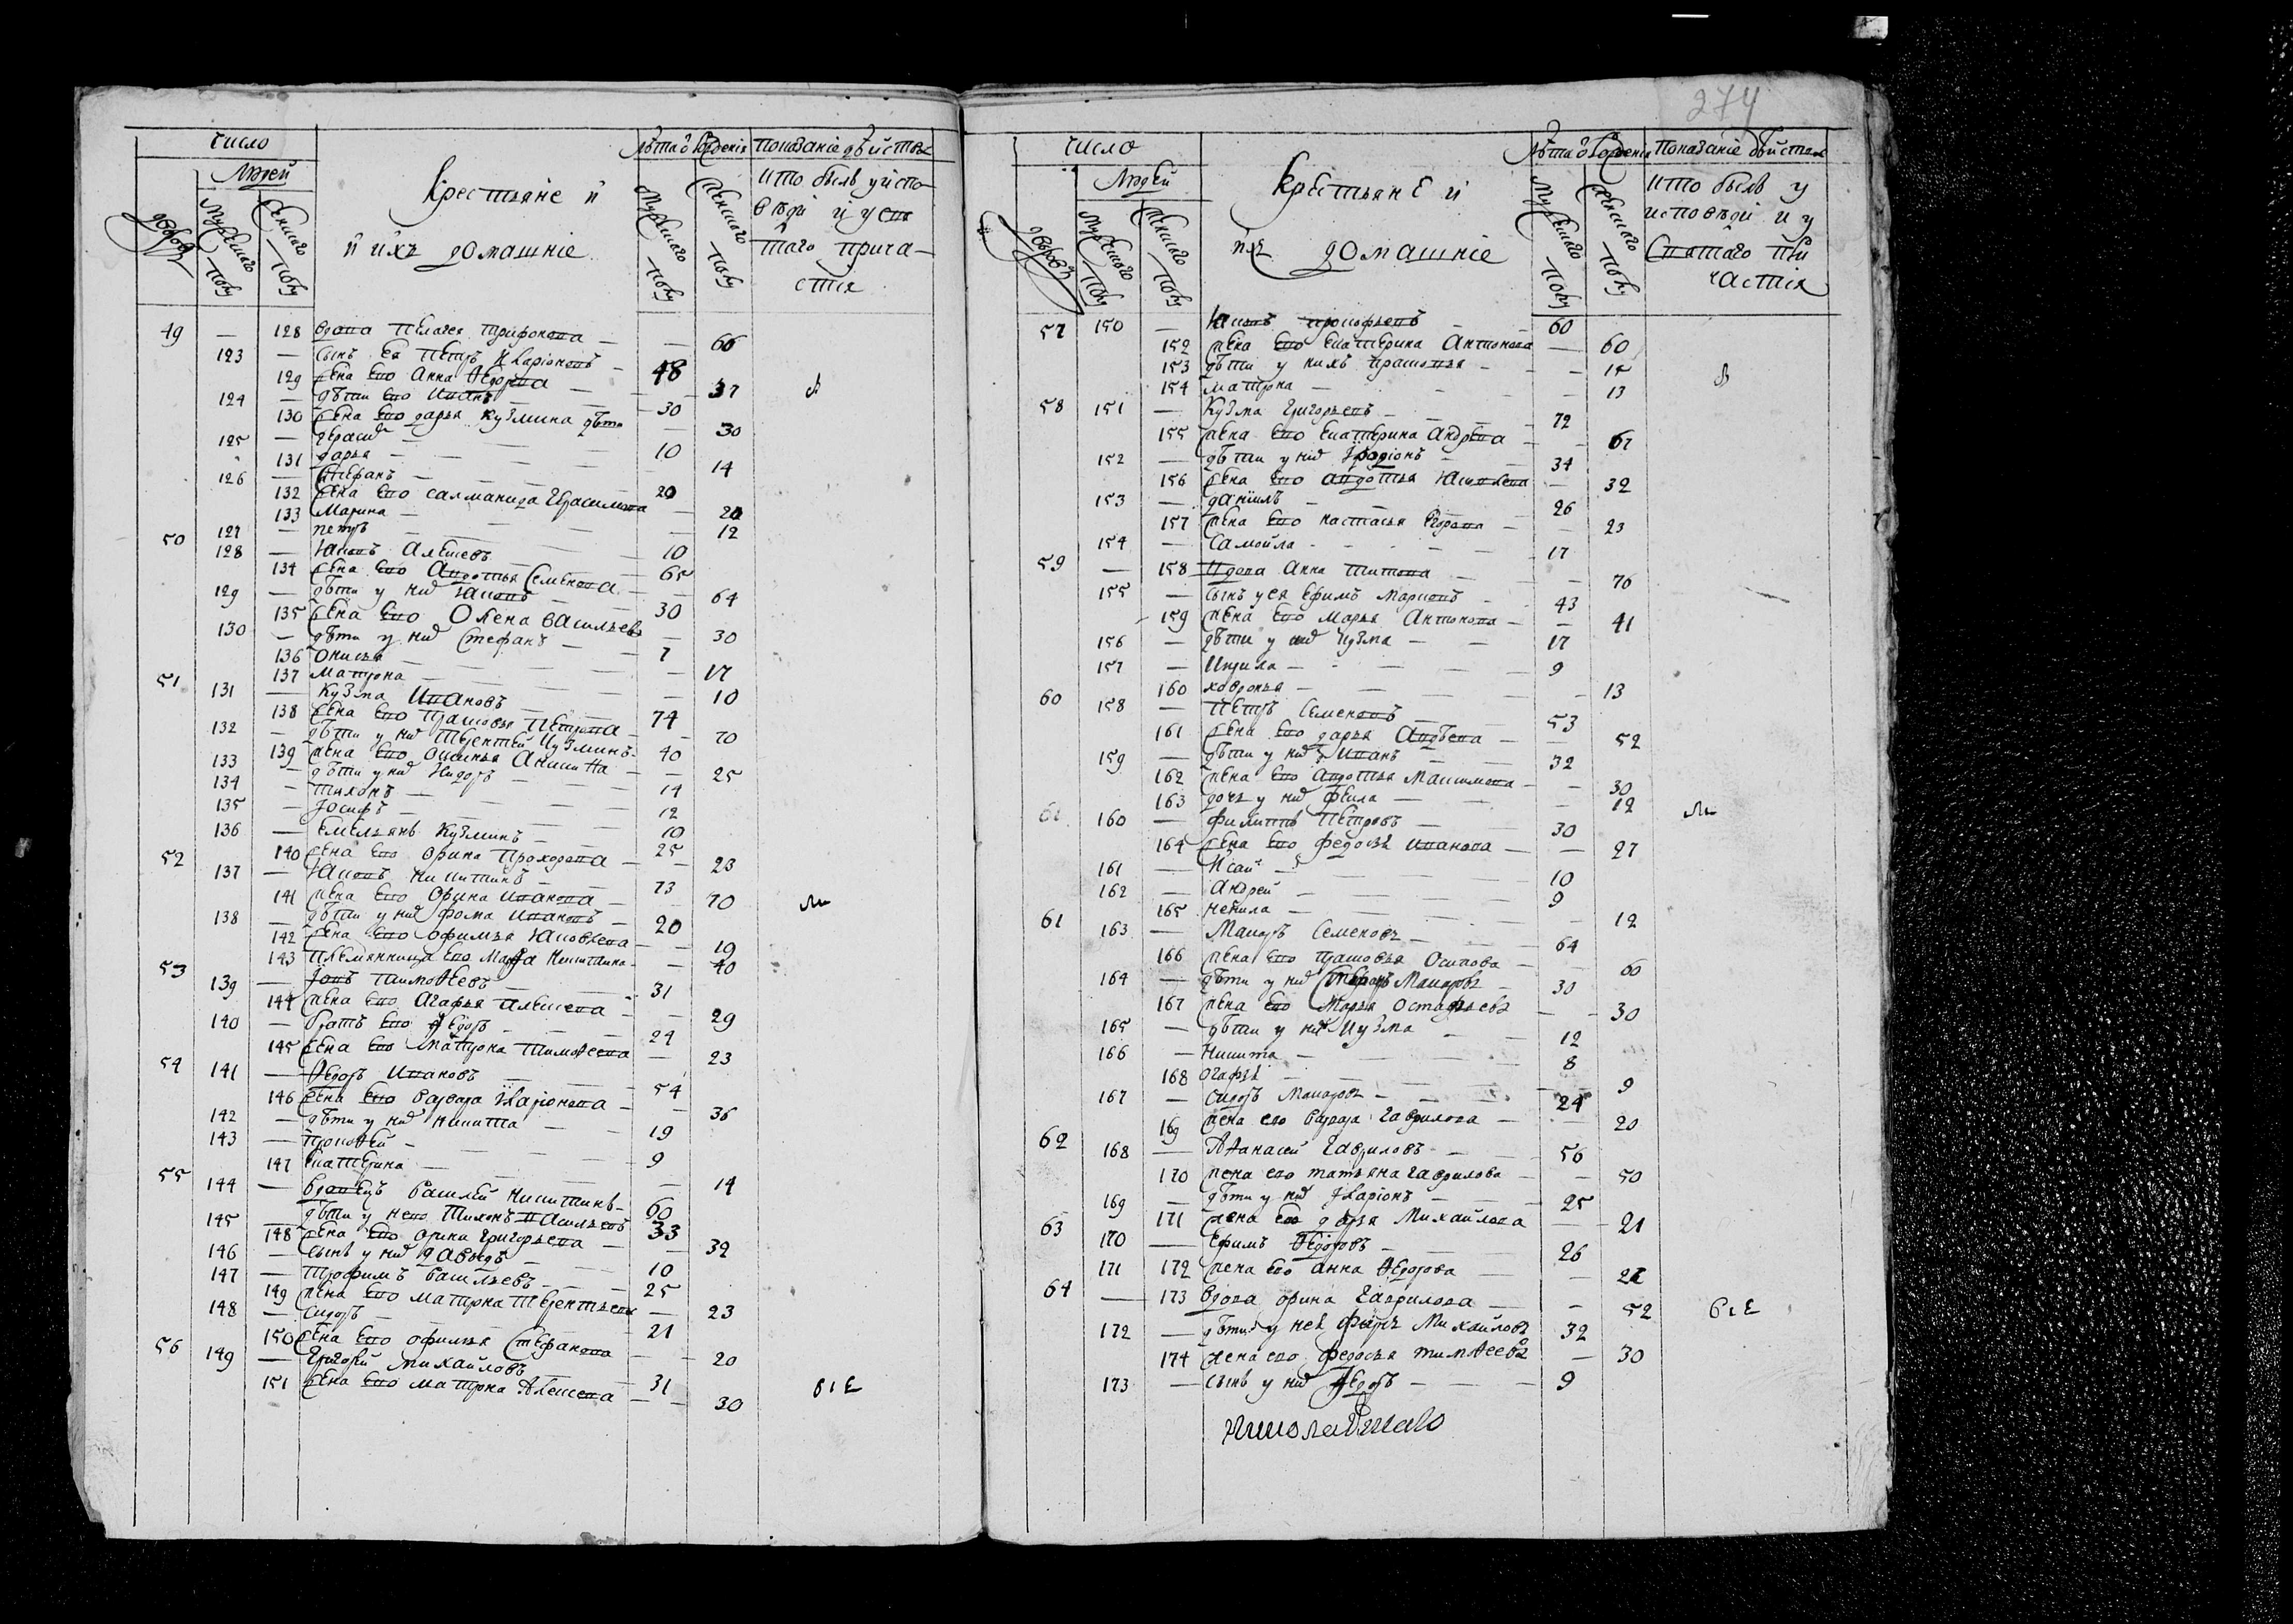 число
Людей
дворовъ
Мужескаго полу
Женскаго полу
Крестьяне и
и ихъ домашніе
Лѣта ѿ рожденія
Мужескаго полу
Женскаго полу
показаніе дѣйства
кто былъ у испо-
вѣди и у свя
таго прича-
стія
49 — 128 вдова Пелагея Трифонова — — 66
123 — сынъ ея Петръ Иларіоновъ — 48
129 жена его Анна Ѳедорова — — 37
124 — дѣти его Иванъ — 30
130 жена его дарья Кузмина дѣти — 30
125 — Герасимъ — 10
131 дарья — — 14
126 — Стефанъ — 20
132 жена его Салманида Герасимова — 20
133 Марина — — 12
127 — петръ — 10
50 128 — Яковъ Алексевъ — 65
134 жена его Авдотья Семенова — — 64
129 — дѣти у ниⷯ Яковъ — 30
135 жена его Олена Васильева — 30
130 — дѣти у ниⷯ Стефанъ — 7
136 Онисья — — 17
137 Матрона — — 10
51 131 — Кузма Ивановъ — 74
138 жена его Прасковья Петрова — — 70
132 — дѣти у ниⷯ Терентей Кузминъ — 40
139 жена его Оксинья Аникина — — 25
133 — дѣти у ниⷯ Сидоръ — 14
134 — Тихонъ — 12
135 — Іосифъ — 10
136 — Емельянъ Кузминъ — 25
140 жена его Орина Прохорова — — 23
52 137 — Яковъ Никитинъ — 73
141 жена его Орина Иванова — 70
138 — дѣти у ниⷯ Фома Ивановъ — 20
142 жена его Офимья Яковлева — — 19
143 племянница его Марфа Никитина — — 40
53 139 — Іовъ Тимоѳеевъ — 31
144 жена его Агафья Алексева — — 29
140 — братъ его Ѳедоръ — 24
145 жена его Матрона Тимоѳеева — 23
54 141 — Ѳедоръ Ивановъ — 54
146 жена его Варвара Иларіонова — — 36
142 — дѣти у ниⷯ Никита — 19
143 — Прокофей — 9
147 Екатерина — — 14
55 144 — Вдовецъ Василей Никитинъ — 60
145 дѣти у него Тихонъ Васильевъ 33
148 жена его Орина Григорьева — — 32
146 — сынъ у ниⷯ Давыдъ — 10
147 — Трофимъ Васильевъ — 25
149 жена его Матрона Терентьева — 23
148 — Сидоръ — 21
150 жена его Офимья Стефанова — — 20
56 149 — Григорей Михайловъ — 31
151 жена его Матрона Алексева — — 30
274
число
Людей
дворовъ
Мужескаго полу
Женскаго полу
Крестьяне и
ихъ домашніе
Лѣта ѿ рожденія
Мужескаго полу
Женскаго полу
показаніе дѣйства
кто былъ у
исповѣди и у
Святаго при
частія
57 150 — Яковъ Прокофьевъ — 60
152 жена его Екатерина Антонова — 60
153 дѣти у нихъ Прасковья — — 15
154 Матрона — — 13
58 151 — Кузма Григорьевъ — 72
155 жена его Екатерина Андрева — — 67
152 — дѣти у ниⷯ Іродіонъ — 34
156 жена его Авдотья Яковлева — 32
153 — Даніилъ — 26
157 жена его Настасья Егорова — — 23
154 — Самойла — 17
59 — 158 Вдова Анна Титова — — 76
155 — сынъ у ея Ефимъ Марковъ — 43
159 жена его Марья Антонова — — 41
156 — дѣти у ниⷯ Кузма — 17
157 — Кирила — 9
160 Ховронья — — 13
60 158 — Петръ Семеновъ — 53
161 жена его дарья Авдѣева — — 52
159 — дѣти у ниⷯ Иванъ — 32
162 жена его Авдотья Максимова — — 30
163 дочь у ниⷯ Фекла — — 12
61 160 — Филиппъ Петровъ — 30
164 жена его Федосья Иванова — — 27
161 — Исай — 10
162 — Андрей — 9
165 Ненила — — 12
61 163 — Макаръ Семеновъ — 64
166 жена его Прасковья Осипова — 60
164 — дѣти у ниⷯ Стефанъ Макаровъ — 30
167 жена его Марья Остафьева — — 30
165 — дѣти у ниⷯ Кузма — 12
166 — Никита — 8
168 Огафья — 9
167 — Сидоръ Макаровъ — 24
169 жена его Варвара Гаврилова — — 20
62 168 — Аѳанасей Гавриловъ — 56
170 жена его Татьяна Гаврилова — — 50
169 — дѣти у ниⷯ Иларіонъ — 25
171 жена его дарья Михайлова — 21
63 170 — Ефимъ Ѳедоровъ — 26
171 172 жена его Анна Ѳедорова — — 22
64 — 173 Вдова Орина Гаврилова — — 52
172 — дѣти у нея Фирсъ Михайловъ 32
174 жена его Федосья Тимоѳеева — 30
173 — сынъ у ниⷯ Ѳедоръ — 9